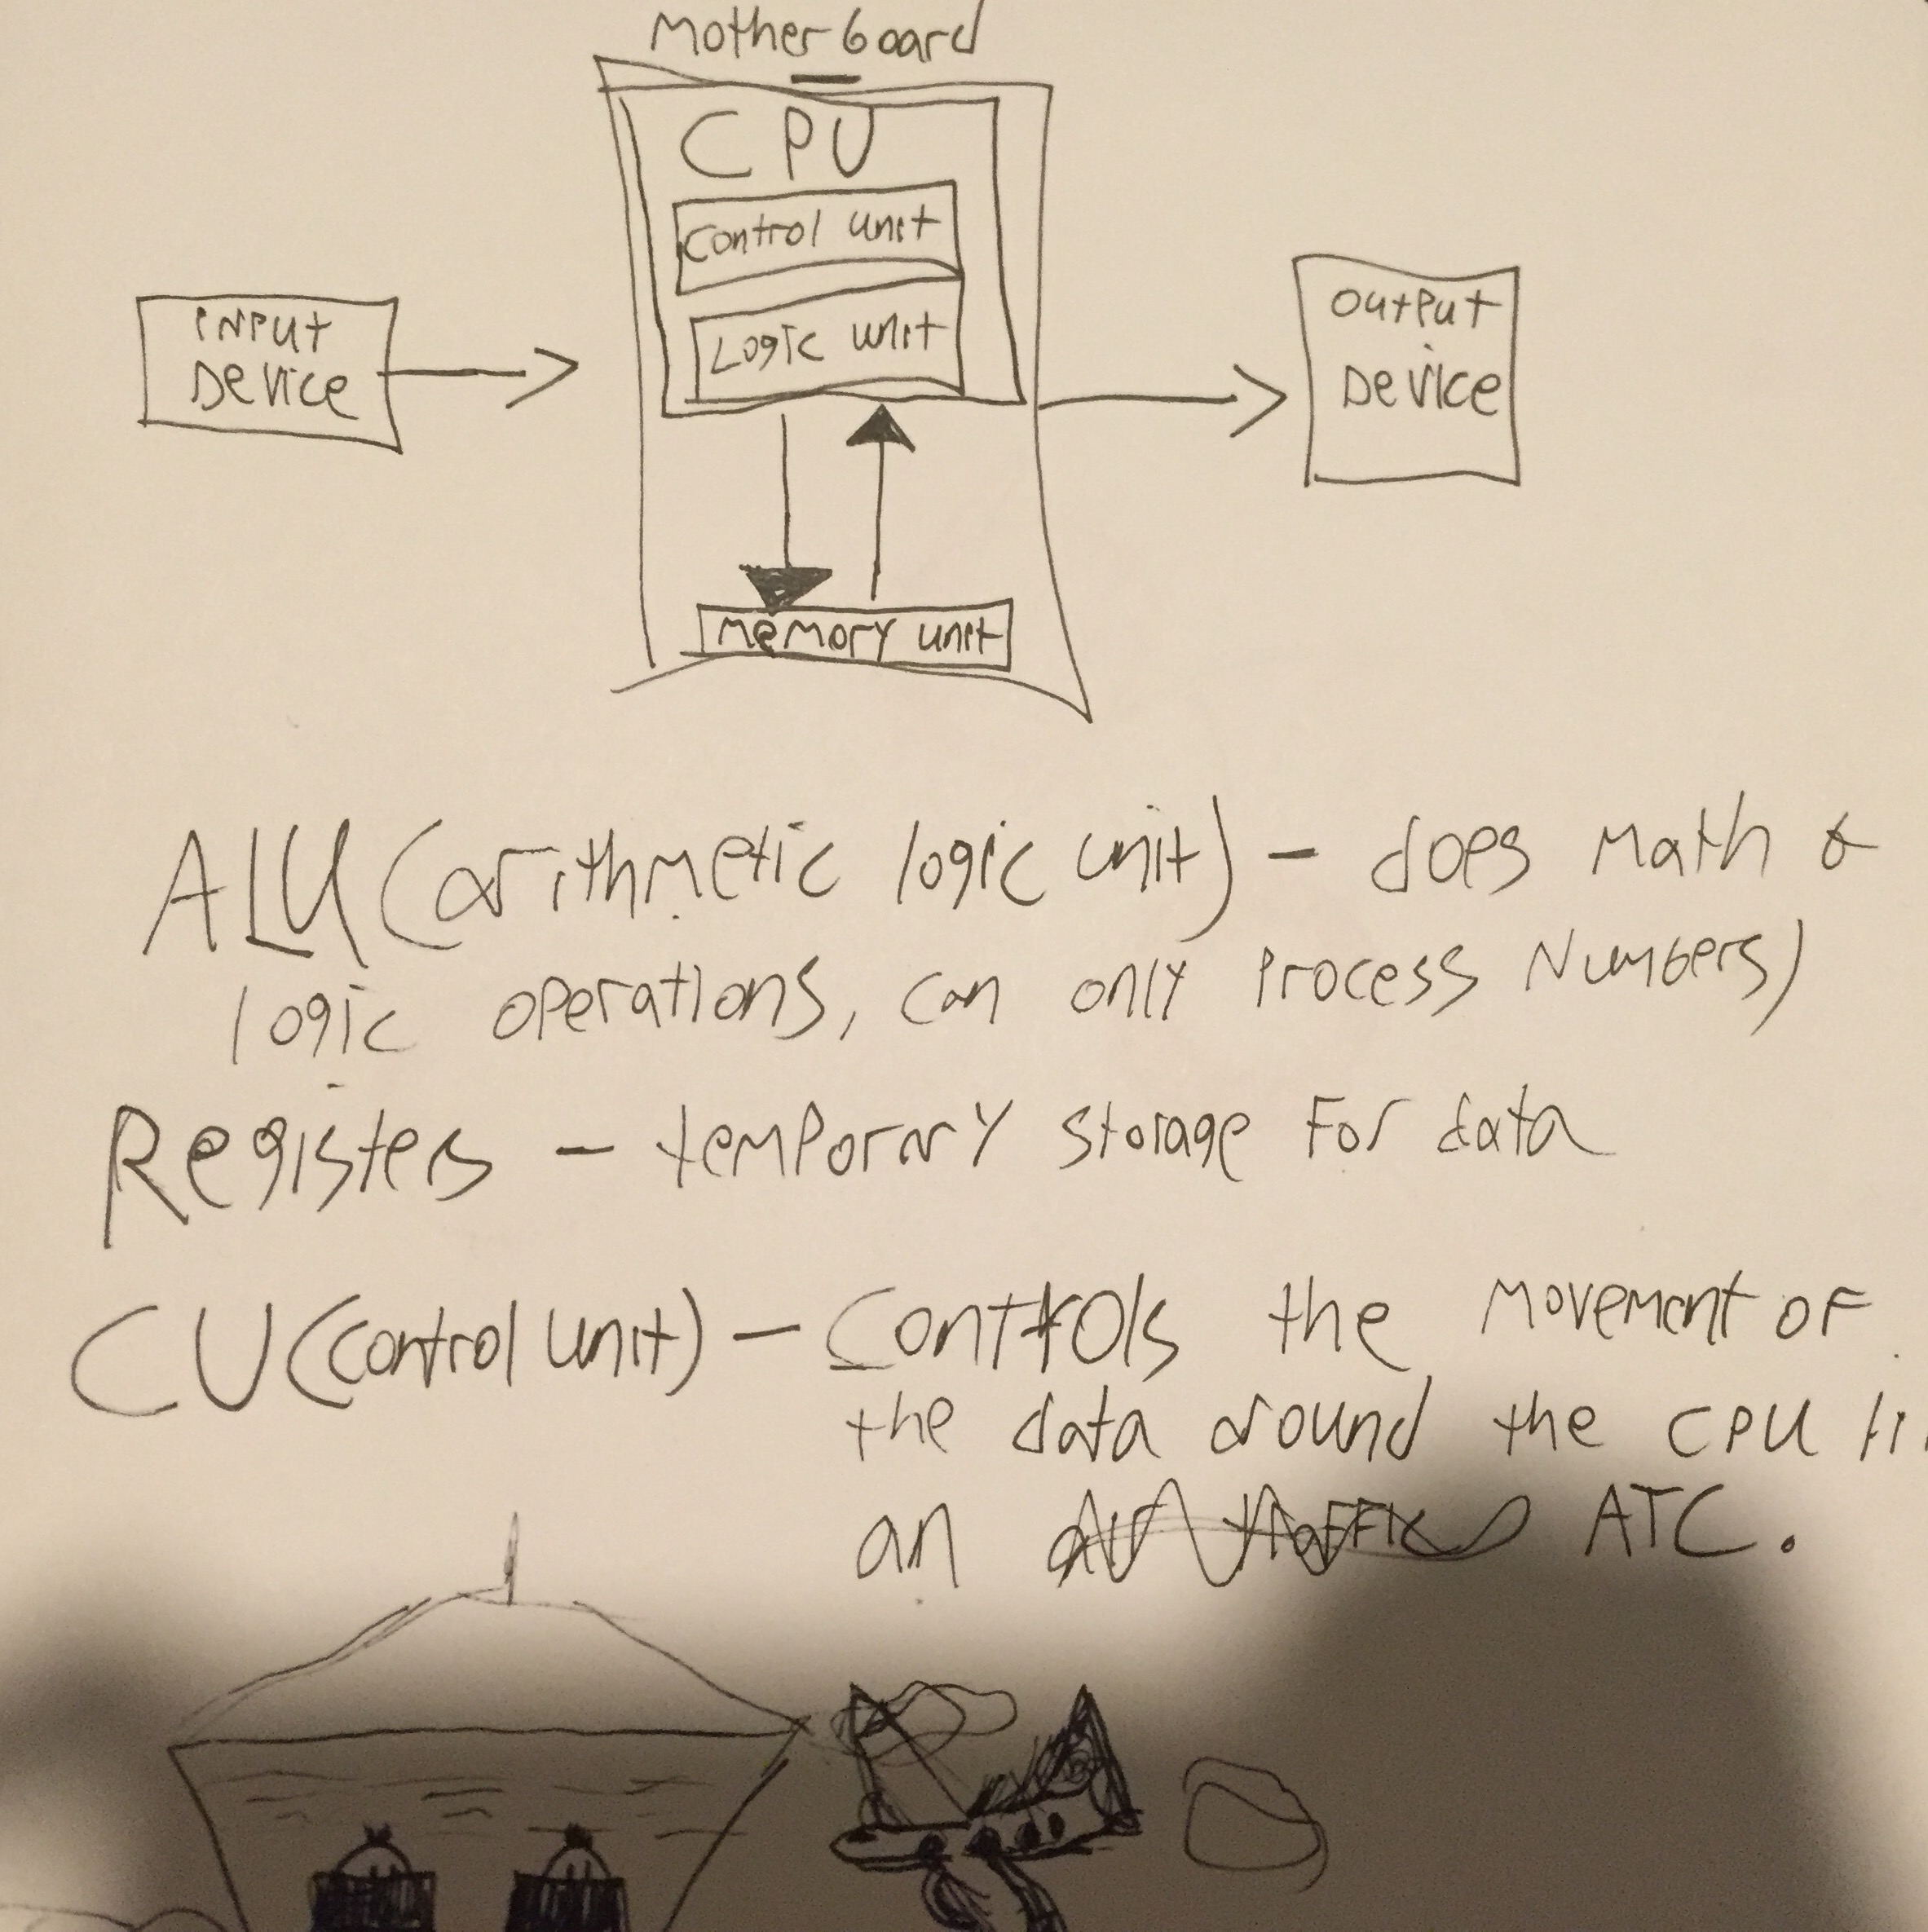 Motherboard
CPU
control unit
Logic unit
INPUt
Device
OutPut
Device
Memory unit
ALU (arithmetic logic unit) - does Math &
logic operations, can only Process Numbers)
Registers - temporary storage For data
CU (control unit) - Controls the Movement of
the data around the CPU
an ATC.